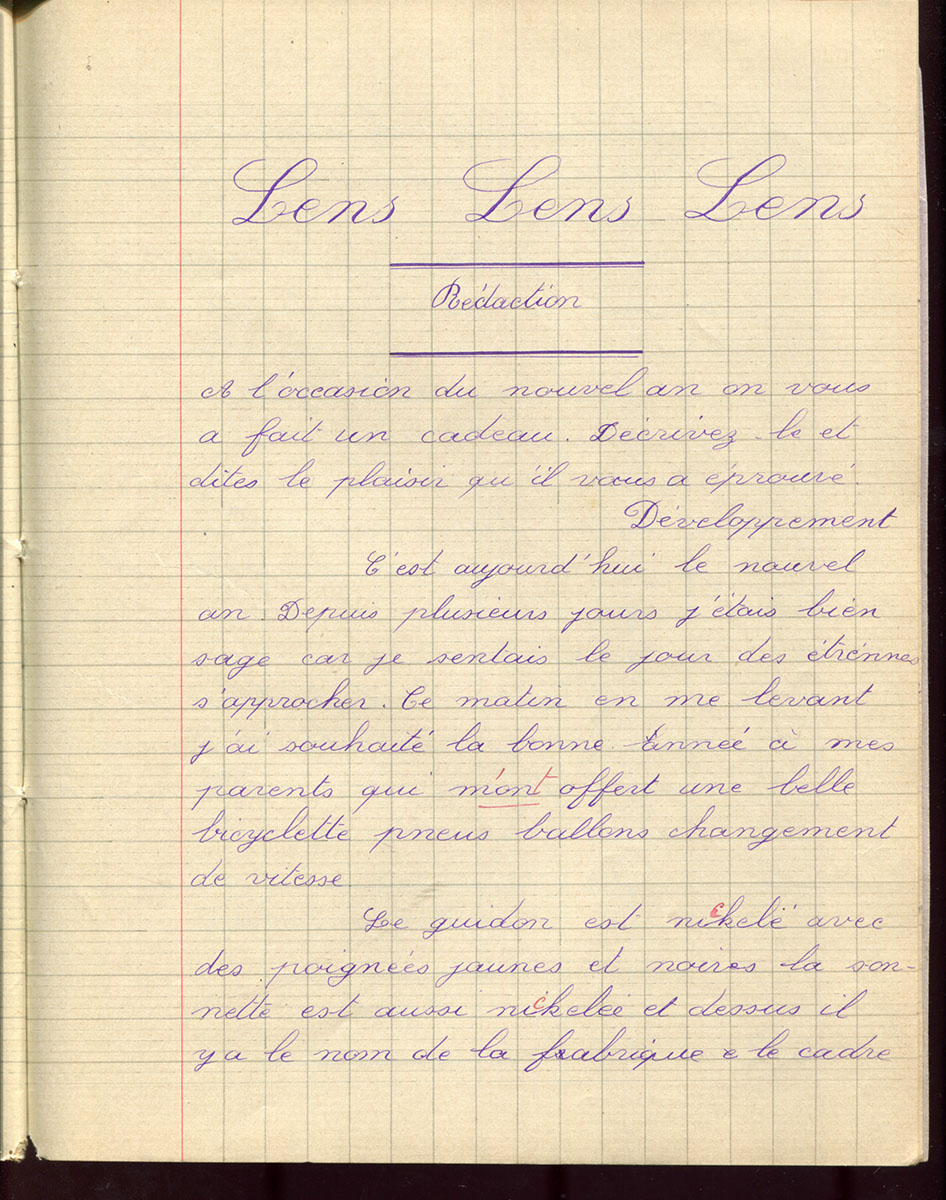 Lens Lens Lens
Rédaction
A l'occasion du nouvel an on vous
a fait un cadeau. Décrivez-le et
dites le plaisir qu'il vous a éprouvé.
Développement
C'est aujourd'hui le nouvel
an. Depuis plusieurs jours j'étais bien
sage car je sentais le jour des étrennes
s'approcher. Ce matin en me levant
j'ai souhaité la bonne année à mes
parents qui m'ont offert une belle
bicyclette pneus ballons changement
de vitesse.
Le guidon est nickelé avec
des poignées jaunes et noires la son-
nette est aussi nickelée et dessus il
y a le nom de la frabrique e le cadre